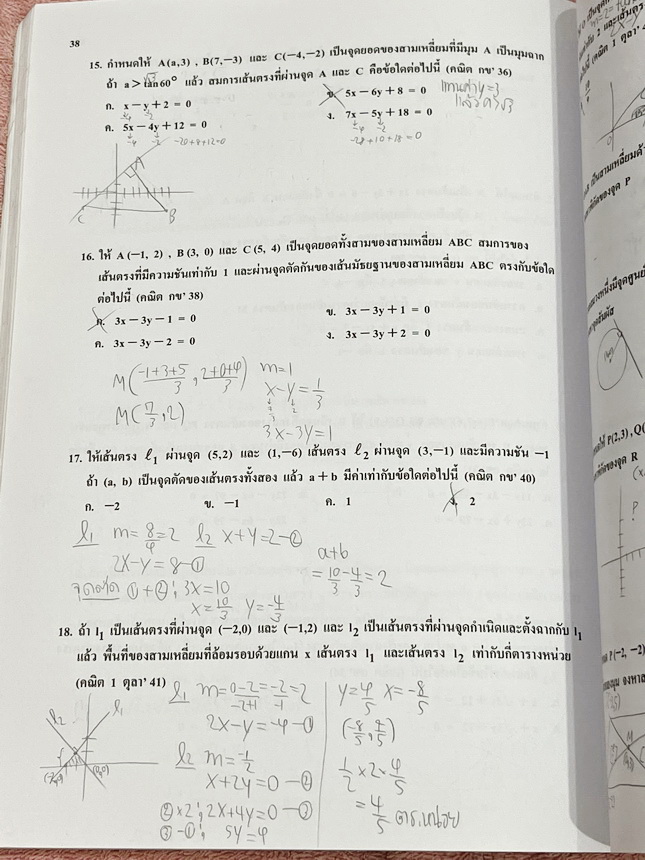 38
15. กำหนดให้ A(a,3) , B(7,−3) และ C(−4,−2) เป็นจุดยอดของสามเหลี่ยมที่มีมุม A เป็นมุมฉาก
ถ้า a > tan60° แล้ว สมการเส้นตรงที่ผ่านจุด A และ C คือข้อใดต่อไปนี้ (คณิต กข' 36)
ก. x−y+2 = 0
ข. 5x−6y+8 = 0
แทนค่า y=3
ค. 5x−4y+12 = 0
ง. 7x−5y+18 = 0
-4 -2 -20+8+12=0
-28+10+18=0
A
C B
16. ให้ A(−1, 2) , B(3, 0) และ C(5, 4) เป็นจุดยอดทั้งสามของสามเหลี่ยม ABC สมการของ
เส้นตรงที่มีความชันเท่ากับ 1 และผ่านจุดตัดกันของเส้นมัธยฐานของสามเหลี่ยม ABC ตรงกับข้อใด
ต่อไปนี้ (คณิต กข' 38)
ก. 3x−3y−1 = 0
ข. 3x−3y+1 = 0
ค. 3x−3y−2 = 0
ง. 3x−3y+2 = 0
M(-1+3+5/3 , 2+0+4/3) m=1
x-y = 1/3
M(7/3, 2)
3x-3y=1
17. ให้เส้นตรง ℓ1 ผ่านจุด (5,2) และ (1,−6) เส้นตรง ℓ2 ผ่านจุด (3,−1) และมีความชัน −1
ถ้า (a, b) เป็นจุดตัดของเส้นตรงทั้งสอง แล้ว a+b มีค่าเท่ากับข้อใดต่อไปนี้ (คณิต กข' 40)
ก. −2 ข. −1 ค. 1 ง. 2
l1 m=8/4=2 l2 x+y=2-②
2x-y=8-①
a+b
= 10/3 - 4/3 = 2
จุดตัด ①+②; 3x=10
x=10/3 y=-4/3
18. ถ้า l1 เป็นเส้นตรงที่ผ่านจุด (−2,0) และ (−1,2) และ l2 เป็นเส้นตรงที่ผ่านจุดกำเนิดและตั้งฉากกับ l1
แล้ว พื้นที่ของสามเหลี่ยมที่ล้อมรอบด้วยแกน x เส้นตรง l1 และเส้นตรง l2 เท่ากับกี่ตารางหน่วย
(คณิต 1 ตุลา' 41)
l1 m=0-2/-2+1=-2/-1=2
2x-y=-4-①
l2 m=-1/2
x+2y=0-②
②×2; 2x+4y=0-③
③-①; 5y=4
y=4/5 x=-8/5
(-8/5, 4/5)
1/2×2×4/5
=4/5 ตร.หน่วย
l2 l1
(-2,0) (0,0)